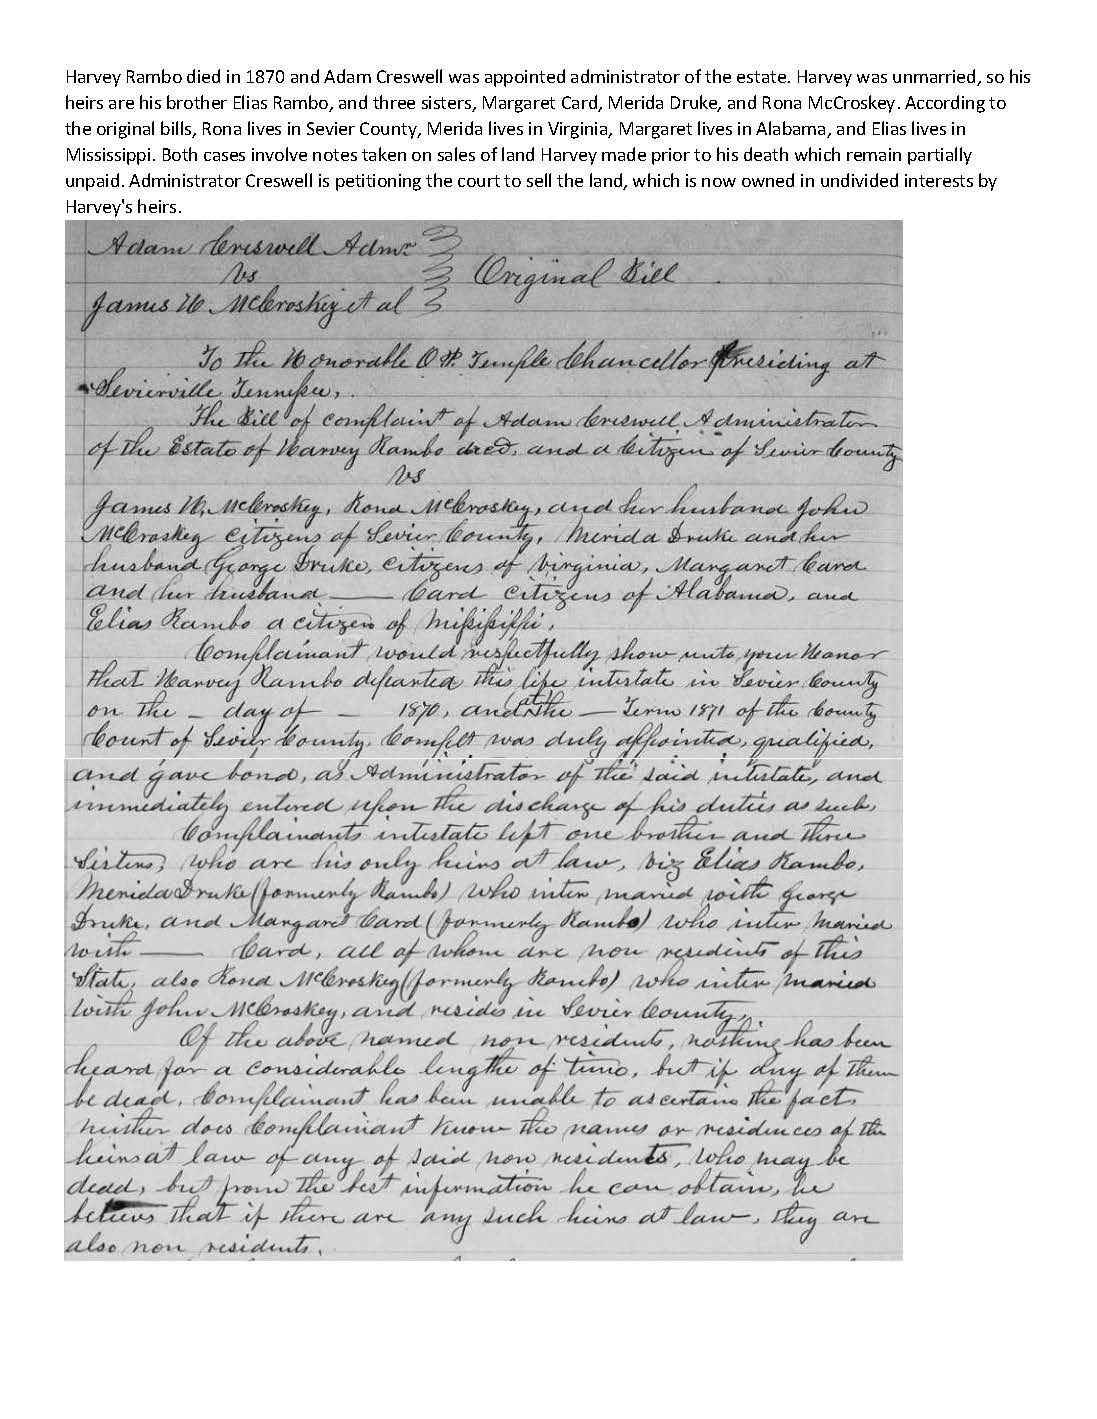 Harvey Rambo died in 1870 and Adam Creswell was appointed administrator of the estate. Harvey was unmarried, so his
heirs are his brother Elias Rambo, and three sisters, Margaret Card, Merida Druke, and Rona McCroskey. According to
the original bills, Rona lives in Sevier County, Merida lives in Virginia, Margaret lives in Alabama, and Elias lives in
Mississippi. Both cases involve notes taken on sales of land Harvey made prior to his death which remain partially
unpaid. Administrator Creswell is petitioning the court to sell the land, which is now owned in undivided interests by
Harvey's heirs.
Adam Creswell Admr
Vs
Original Bill
James H McCroskey et al
To the Honorable O.P. Temple Chancellor Presiding at
Sevierville Tennessee,
The Bill of complaint of Adam Creswell Administrator
of the Estate of Harvey Rambo decd, and a Citizen of Sevier County
Vs
James H, McCroskey, Rona McCroskey, and her husband John
McCroskey citizens of Sevier County, Merida Druke and her
husband George Druke, citizens of Virginia, Margaret Card
and her husband —— Card citizens of Alabama, and
Elias Rambo a citizen of Mississippi,
Complainant would respectfully show unto your Honor
that Harvey Rambo departed this life intestate in Sevier County
on the — day of — 1870, and at the — Term 1871 of the County
Court of Sevier County. Complt was duly appointed, qualified,
and gave bond, as Administrator of the said intestate, and
immediately entered upon the discharge of his duties as such,
Complainants intestate left one brother and three
Sisters, who are his only heirs at law, viz Elias Rambo,
Merida Druke (formerly Rambo) who inter maried with George
Druke, and Margaret Card (formerly Rambo) who inter maried
with —— Card, all of whom are non residents of this
State, also Rona McCroskey (formerly Rambo) who inter maried
with John McCroskey, and resides in Sevier County,
Of the above named non residents, nothing has been
heard for a considerable lengthe of time, but if any of them
be dead, Complainant has been unable to ascertain the fact,
neither does Complainant know the names or residences of the
heirs at law of any of said non residents, who may be
dead, but from the best information he can obtain, he
believes that if there are any such heirs at law, they are
also non residents.